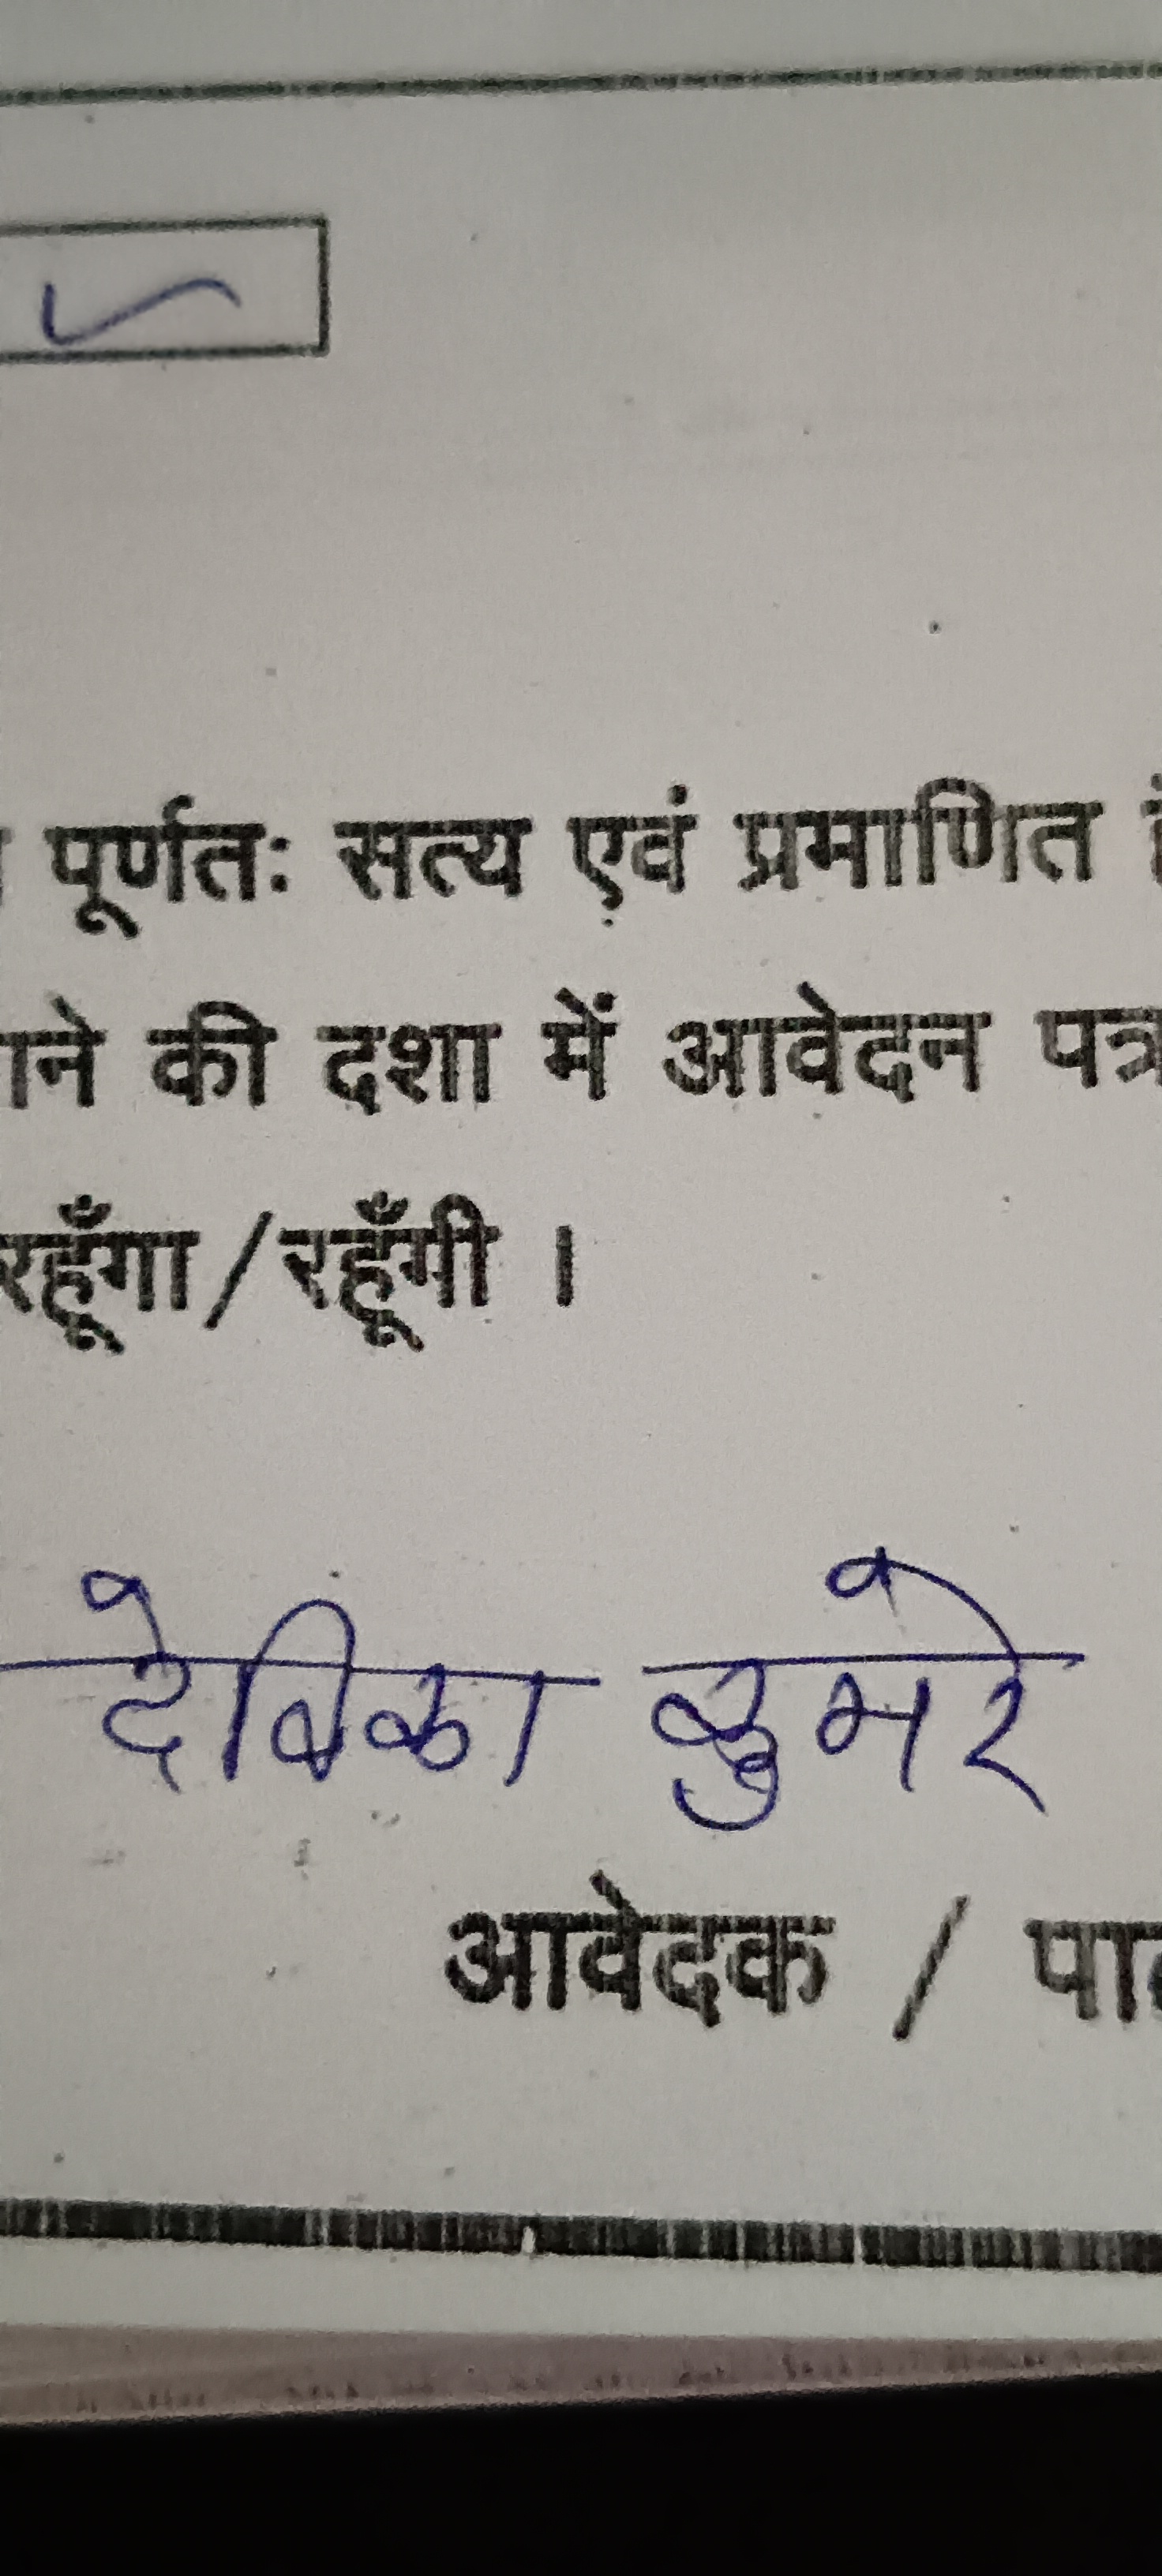 पूर्णतः सत्य एवं प्रमाणित
की दशा में आवेदन पत्र
रहूँगा/रहूँगी ।
देविका कुमरे
आवेदक /